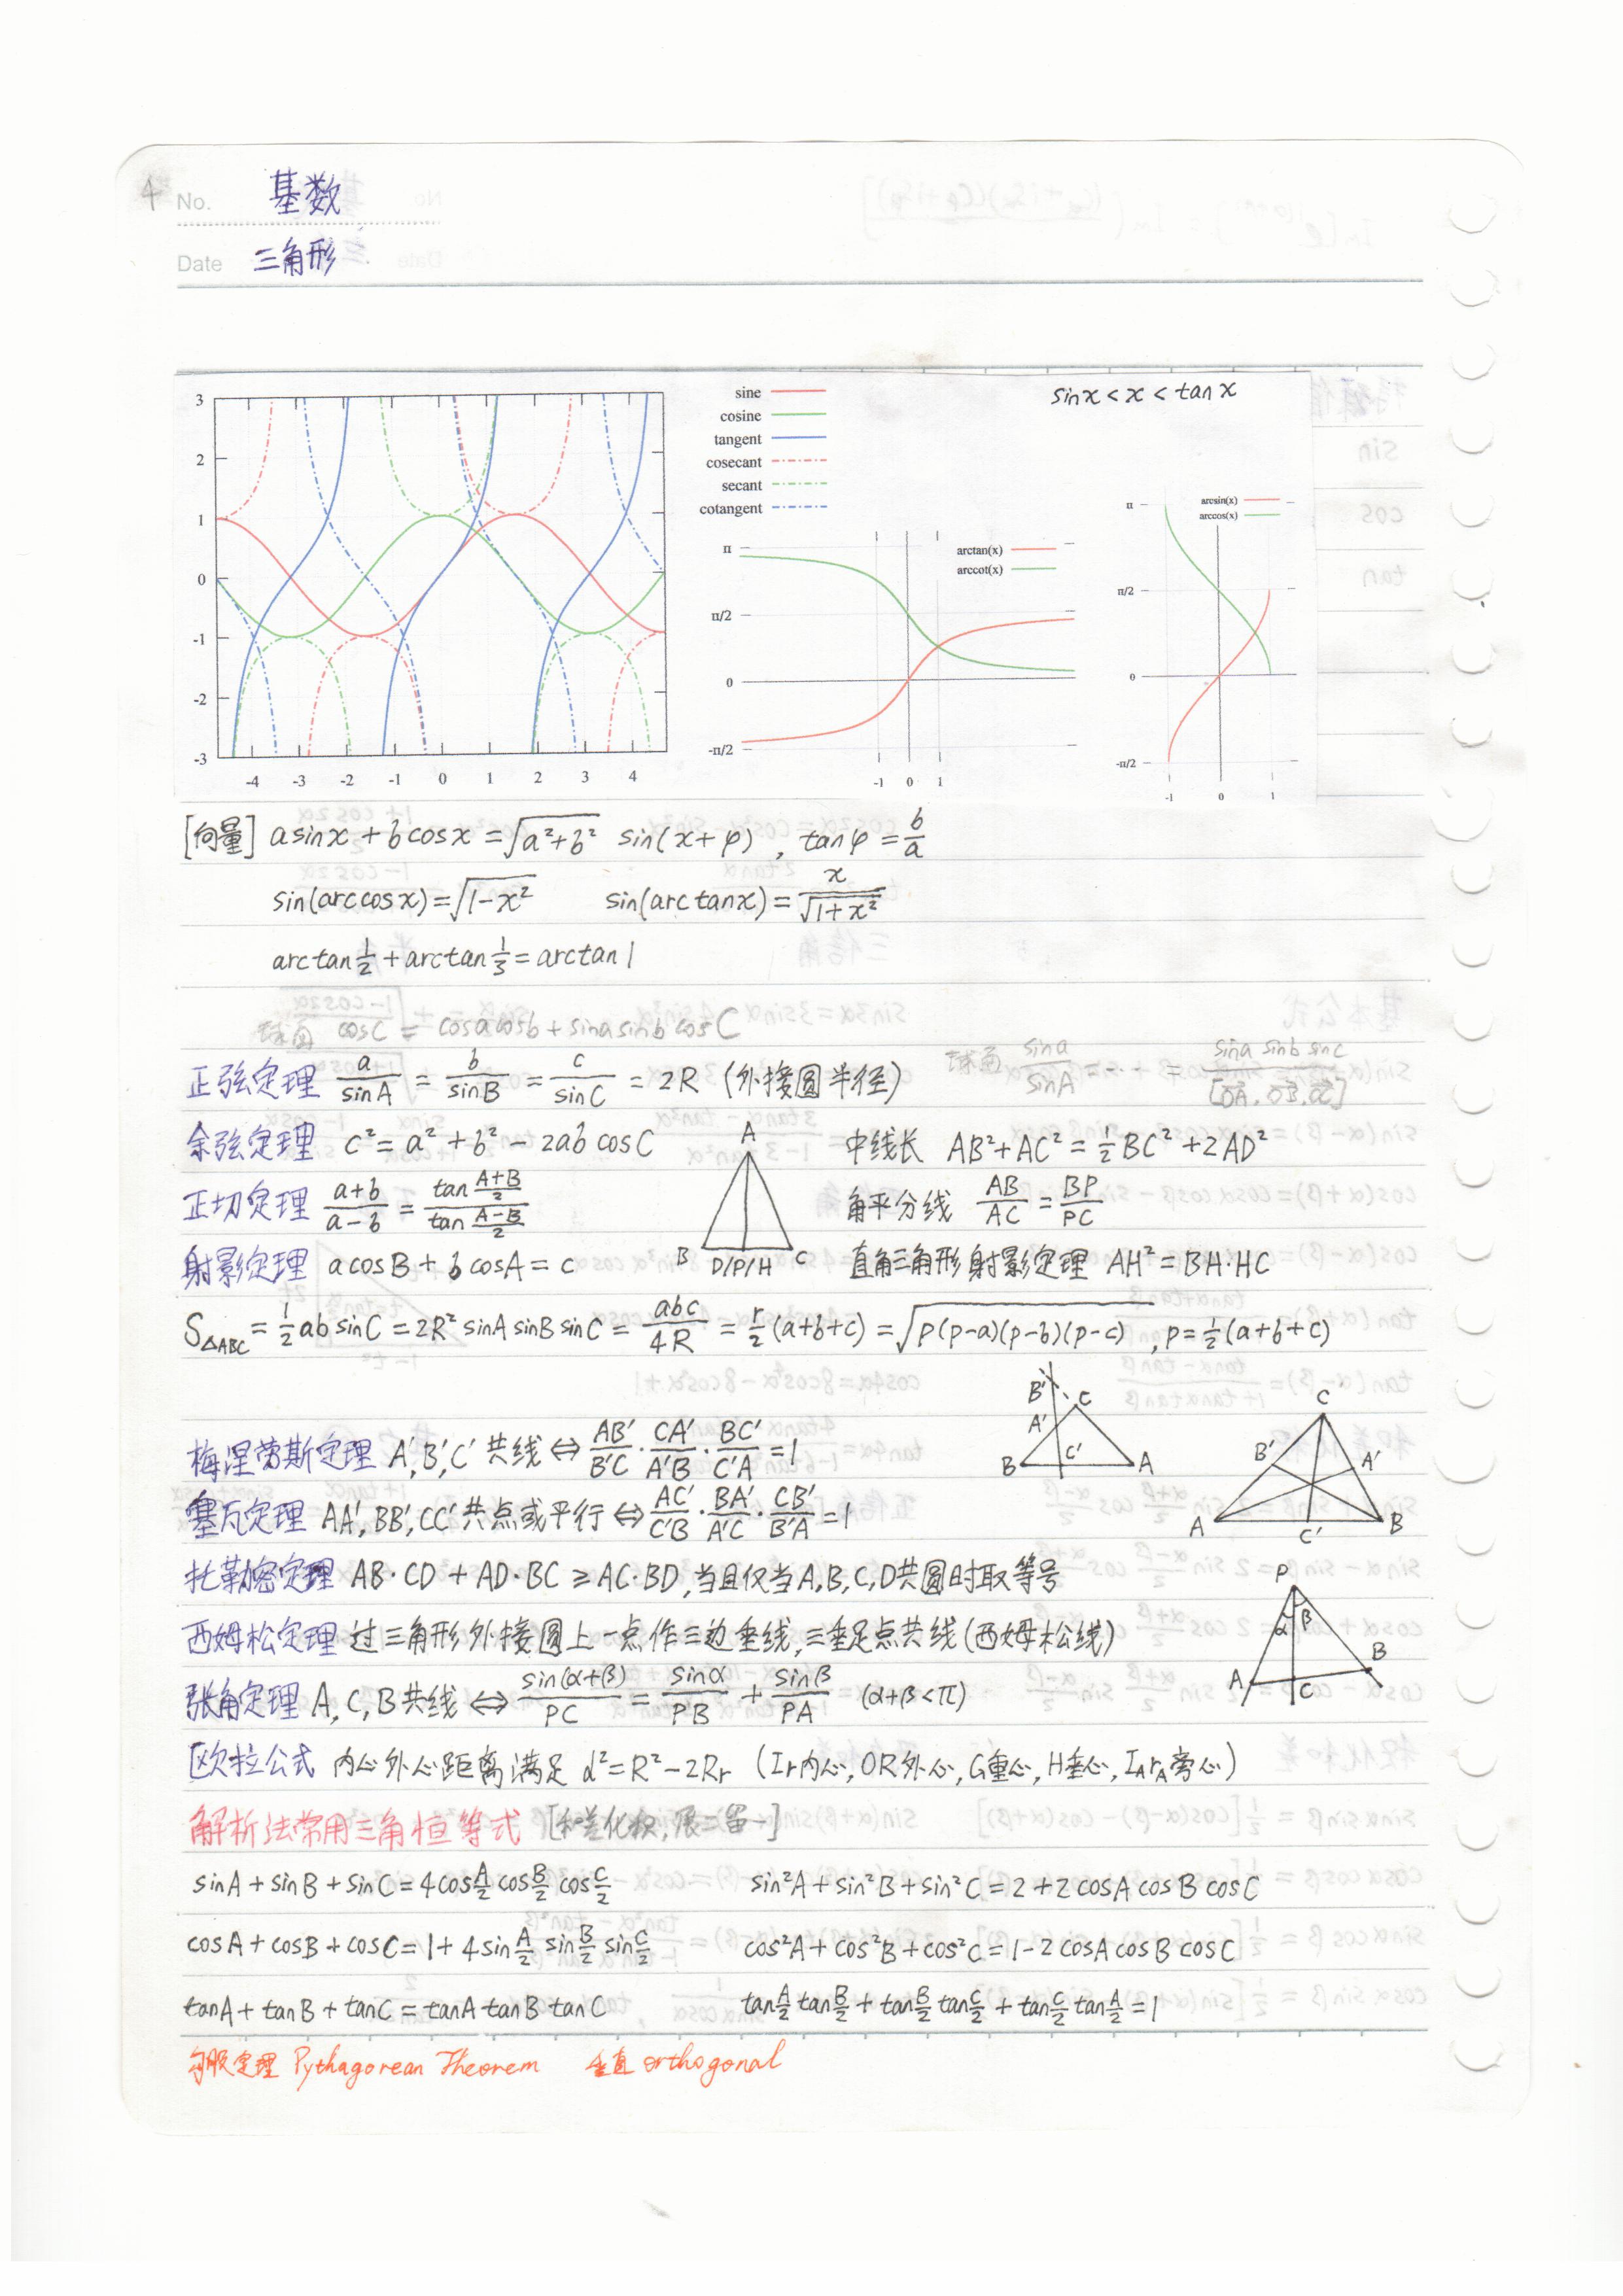 4
No. 基数
Date 三角形
sin x < x < tan x
3
2
1
0
-1
-2
-3
-4 -3 -2 -1 0 1 2 3 4
sine
cosine
tangent
cosecant
secant
cotangent
arctan(x)
arccot(x)
π
π/2
0
-π/2
-1 0 1
arcsin(x)
arccos(x)
π
π/2
0
-π/2
-1 0 1
[向量] a sin x + b cos x = √(a²+b²) sin(x+φ), tanφ = b/a
sin(arccos x) = √(1-x²) sin(arctan x) = x/√(1+x²)
arctan 1/2 + arctan 1/3 = arctan 1
球面 cos C = cos a cos b + sin a sin b cos C
正弦定理 a/sin A = b/sin B = c/sin C = 2R (外接圆半径) 球面 sin a/sin A = ... = sin a sin b sin c/[OA, OB, OC]
余弦定理 c² = a² + b² - 2ab cos C 中线长 AB² + AC² = 1/2 BC² + 2AD²
正切定理 (a+b)/(a-b) = tan (A+B)/2 / tan (A-B)/2 角平分线 AB/AC = BP/PC
射影定理 a cos B + b cos A = c 直角三角形射影定理 AH² = BH·HC
A
B D/P/H C
S△ABC = 1/2 ab sin C = 2R² sin A sin B sin C = abc/4R = r/2 (a+b+c) = √(p(p-a)(p-b)(p-c)), p = 1/2 (a+b+c)
梅涅劳斯定理 A', B', C' 共线 ⇔ AB'/B'C · CA'/A'B · BC'/C'A = 1
B' C
A'
B C' A
塞瓦定理 AA', BB', CC' 共点或平行 ⇔ AC'/C'B · BA'/A'C · CB'/B'A = 1
C
B' A'
A C' B
托勒密定理 AB·CD + AD·BC ≥ AC·BD, 当且仅当A,B,C,D共圆时取等号
西姆松定理 过三角形外接圆上一点作三边垂线, 三垂足点共线(西姆松线)
张角定理 A, C, B 共线 ⇔ sin(α+β)/PC = sin α/PB + sin β/PA (α+β<π)
P
α β
A C B
欧拉公式 内心外心距离满足 d² = R² - 2Rr (Ir内心, OR外心, G重心, H垂心, I_A r_A旁心)
解析法常用三角恒等式 [和差化积, 展二留一]
sin A + sin B + sin C = 4 cos A/2 cos B/2 cos C/2 sin²A + sin²B + sin²C = 2 + 2 cos A cos B cos C
cos A + cos B + cos C = 1 + 4 sin A/2 sin B/2 sin C/2 cos²A + cos²B + cos²C = 1 - 2 cos A cos B cos C
tan A + tan B + tan C = tan A tan B tan C tan A/2 tan B/2 + tan B/2 tan C/2 + tan C/2 tan A/2 = 1
勾股定理 Pythagorean Theorem 垂直 orthogonal